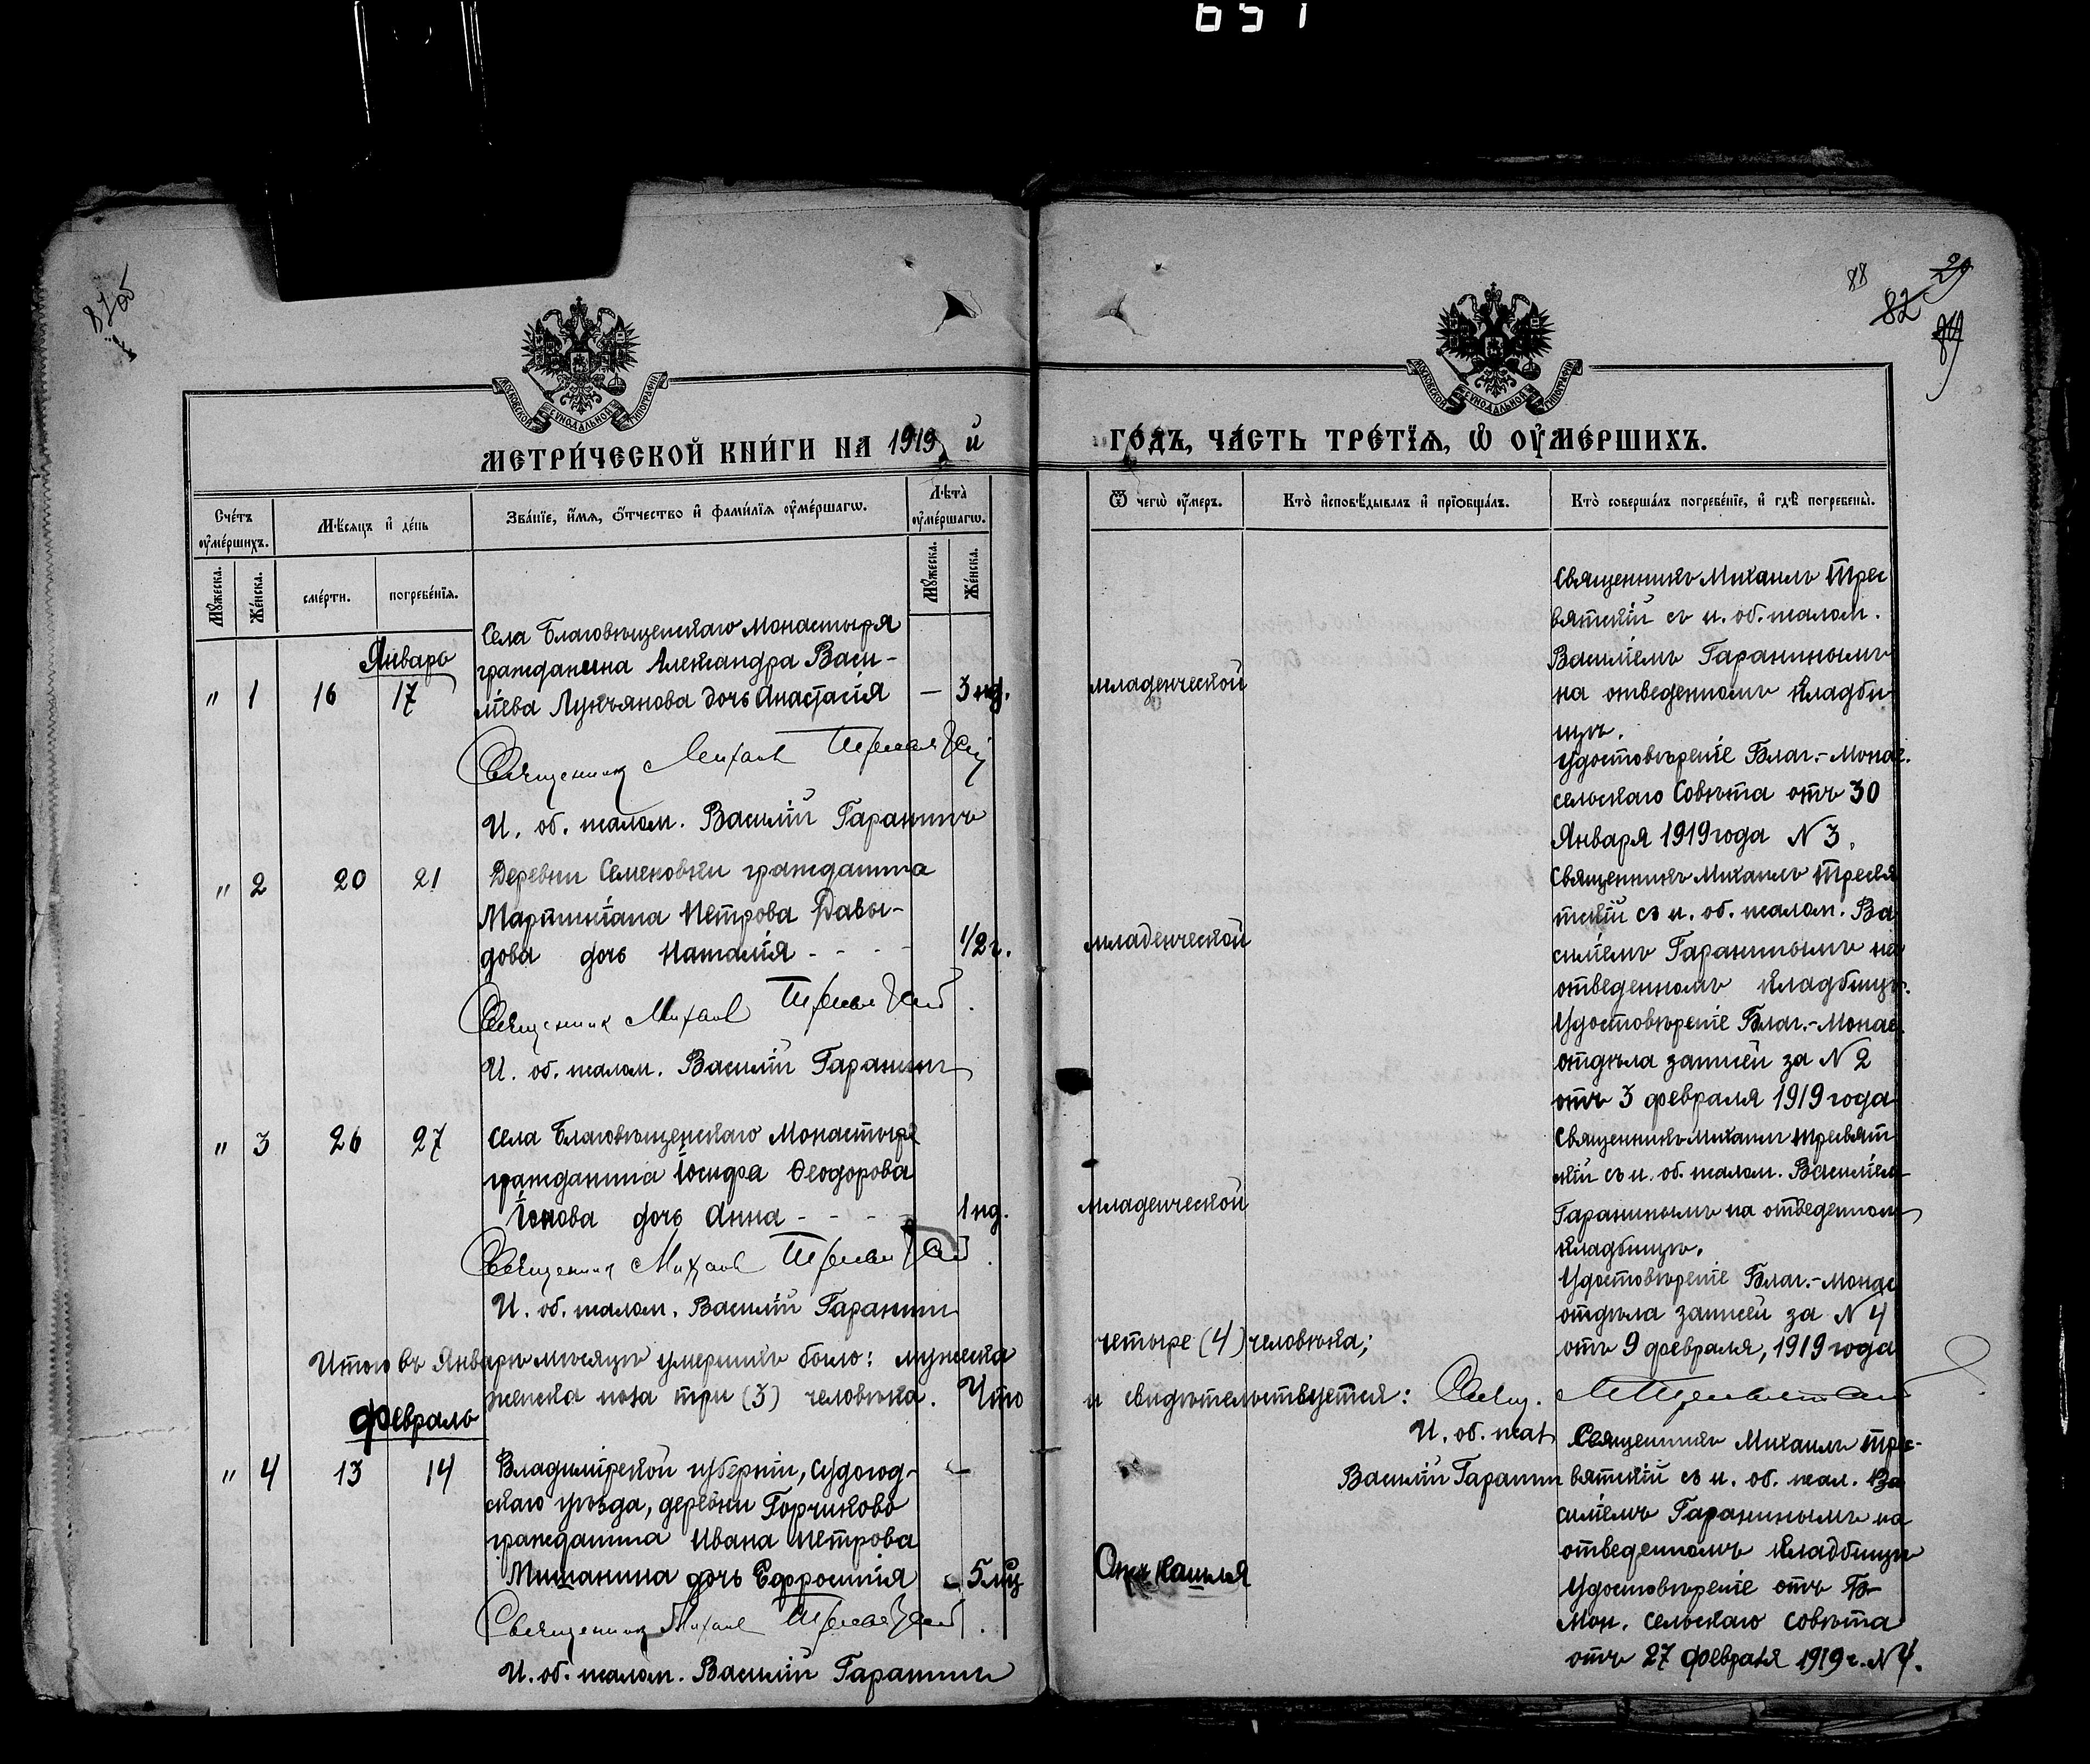 651
87об
88
29
82
МОСКОВСКОЙ СѴНОДАЛЬНОЙ ТИПОГРАФІИ
МОСКОВСКОЙ СѴНОДАЛЬНОЙ ТИПОГРАФІИ
МЕТРИ́ЧЕСКОЙ КНИ́ГИ НА 1919 й
ГО́ДЪ, ЧА́СТЬ ТРЕ́ТЇѦ, Ѡ҆ ОУ҆МЕ́РШИХЪ.
Сче́тъ оу҆ме́ршихъ.
Мѣ́сѧцъ и҆ де́нь
Зва́нїе, и҆́мѧ, о҆́тчество и҆ фами́лїѧ оу҆ме́ршагѡ.
Лѣта̀ оу҆ме́ршагѡ.
Ѿ чегѡ̀ оу҆́меръ.
Кто̀ и҆сповѣ́дывалъ и҆ прїѡбща́лъ.
Кто̀ соверша́лъ погребе́нїе, и҆ гдѣ̀ погребены̀.
Мꙋ́жеска.
Же́нска.
сме́рти.
погребе́нїѧ.
Мꙋ́жеска.
Же́нска.
Январь
" 1 16 17
Села Благовѣщенскаго Монастыря
гражданина Александра Васи-
льева Лукъянова дочь Анастасія — 3 нд.
Священник Михаил Тресвятский
И. об. псалом. Василій Гаранинъ
младенческой
Священникъ Михаилъ Трес
вятскій съ и. об. псалом.
Василіемъ Гаранинымъ
на отведенномъ кладби-
щѣ.
Удостовѣреніе Благ.-Монас.
сельскаго Совѣта отъ 30
Января 1919 года N 3.
" 2 20 21
Деревни Семеновки гражданина
Мартиніана Петрова Давы-
дова дочь Наталія - - - 1/2 г.
Священник Михаил Тресвятский
И. об. псалом. Василій Гаранинъ
младенческой
Священникъ Михаилъ Тресвя
тскій съ и. об. псалом. Ва
силіемъ Гаранинымъ на
отведенномъ кладбищѣ.
Удостовѣреніе Благ.-Монас.
отдѣла записей за N 2
отъ 3 февраля 1919 года
" 3 26 27
Села Благовѣщенскаго Монастыря
гражданина Іосифа Ѳеодорова
Іонова дочь Анна - - - - 1 нд.
Священник Михаил Тресвятский
И. об. псалом. Василій Гаранинъ
младенческой
Священникъ Михаилъ Тресвят
скій съ и. об. псалом. Василіемъ
Гаранинымъ на отведенномъ
кладбищѣ.
Удостовѣреніе Благ.-Монас
отдѣла записей за N 4
отъ 9 февраля, 1919 года
Итого въ Январѣ мѣсяцѣ умершихъ было: мужеска четыре (4) человѣка;
женска пола три (3) человѣка. Что и свидѣтельствуется: Свящ. М Тресвятский
И. об. псал.
Василій Гаранин
Февраль
" 4 13 14
Владимірской губерніи, Судогод-
скаго уѣзда, деревни Горчиково
гражданина Ивана Петрова
Мишанина дочь Ефросинія — 5 мц
Священник Михаил Тресвятский
И. об. псалом. Василій Гаранинъ
Отъ кашля
Священникъ Михаилъ Трес-
вятскій съ и. об. псал. Ва
силіемъ Гаранинымъ на
отведенномъ кладбищѣ
Удостовѣреніе отъ Б-
Мон. сельскаго совѣта
отъ 27 февраля 1919 г. N 4.